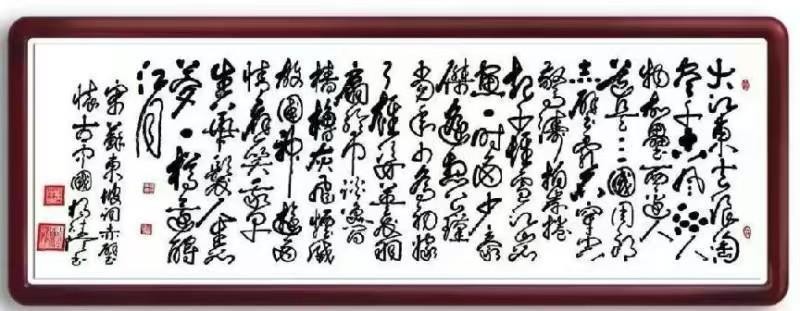 大江東去浪淘
尽千古風流人
物故壘西邊人
道是三國周郎
赤壁乱石穿空
驚濤拍岸捲
起千堆雪江山如
畫一時多少豪
傑遙想公瑾
當年小喬初嫁
了雄姿英发羽
扇綸巾談笑間
檣櫓灰飛煙滅
故國神遊多
情應笑我早
生華髮人生如
夢一樽還酹
江月
宋蘇東坡詞赤壁
懷古中國